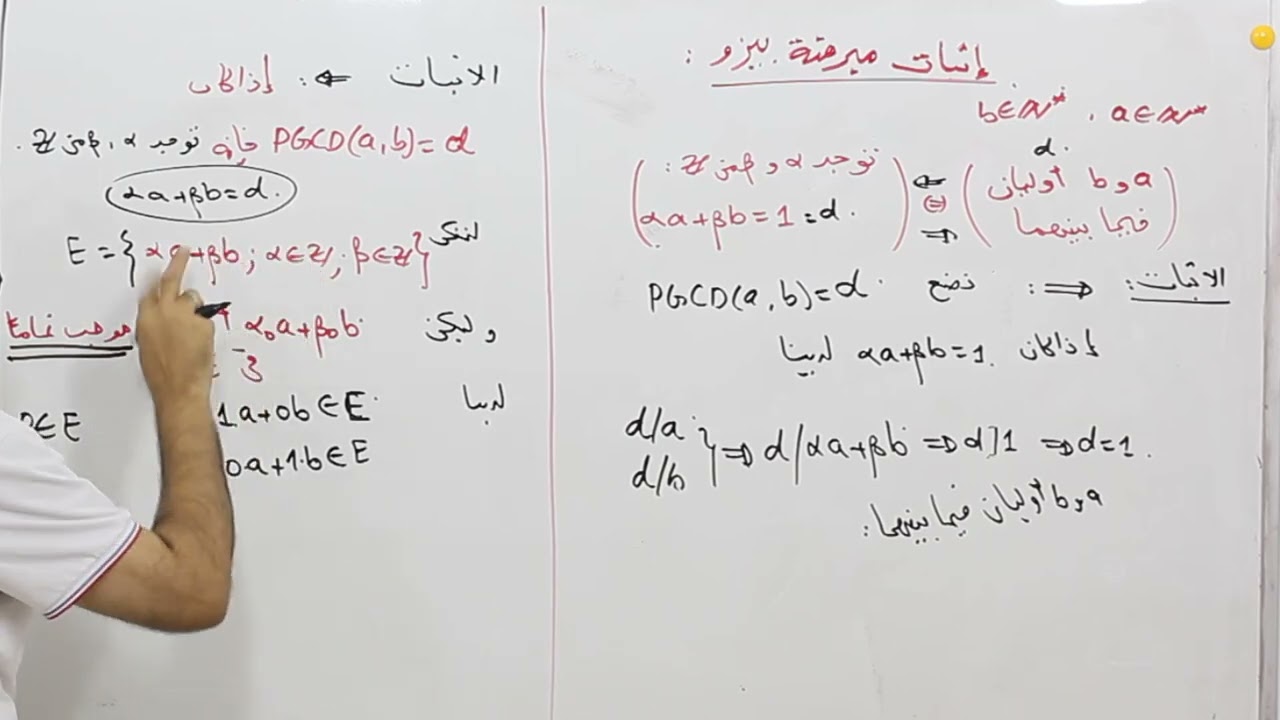 إثبات مبرهنة بيزو :
a ∈ ℕ* , b ∈ ℕ*
d.
(a و b أوليان فيما بينهما) ⇔ (توجد α و β من ℤ : αa+βb=1=d.)
الاثبات: ⟹ : نضع PGCD(a,b)=d.
إذا كان αa+βb=1. لدينا
d/a
d/b } ⇒ d/αa+βb ⇒ d/1 ⇒ d=1.
a و b أوليان فيما بينهما :
الاثبات ⟸ : إذا كان
PGCD(a,b)=d فإنه توجد α, β من ℤ.
αa+βb=d.
لتكن E={αa+βb; α∈ℤ, β∈ℤ}
و ليكن α₀a+β₀b موجب
3
لدينا 1a+0b∈E. ∈E
0a+1.b∈E